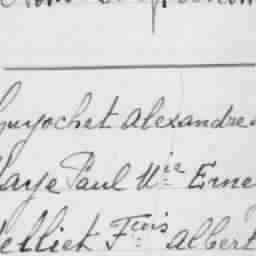 Guyochet Alexandre
Haye Paul Mie Erne
elliet Fcois Albert